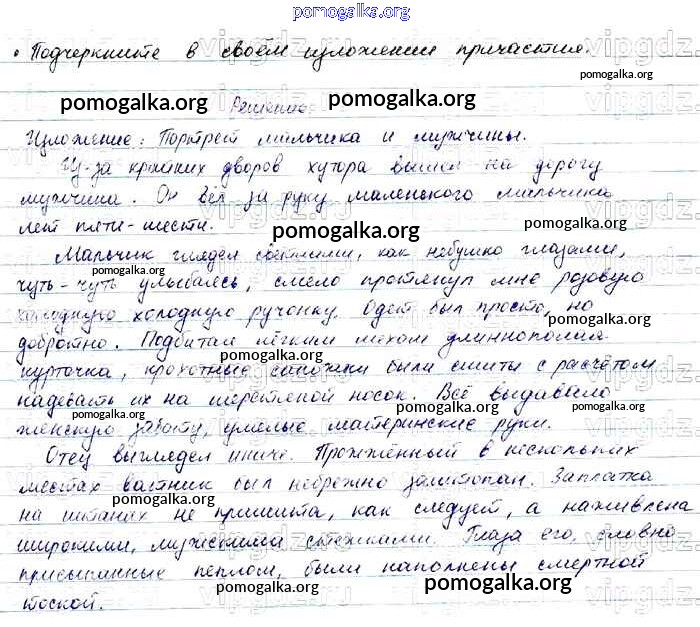 pomogalka.org
• Подчеркните в своём изложении причастия.
Решение:
Изложение: Портрет мальчика и мужчины.
Из-за крайних дворов хутора вышел на дорогу
мужчина. Он вёл за руку маленького мальчика
лет пяти-шести.
Мальчик глядел светлыми, как небушко глазами,
чуть-чуть улыбаясь, смело протянул мне розовую
холодную ручонку. Одет был просто, но
добротно. Подбитая лёгким мехом длиннополая
курточка, крохотные сапожки были сшиты с расчётом
надевать их на шерстяной носок. Всё выдавало
женскую заботу, умелые материнские руки.
Отец выглядел иначе. Прожжённый в нескольких
местах ватник был небрежно заштопан. Заплатка
на штанах не пришита, как следует, а наживлена
широкими, мужскими стежками. Глаза его, словно
присыпанные пеплом, были наполнены смертной
тоской.